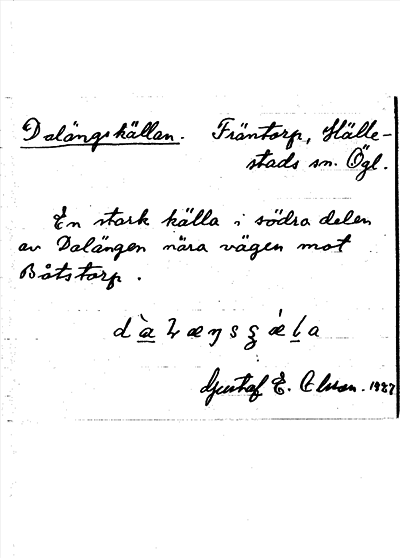 Dalängskällan. Fräntorp, Hälle-
stads sn. Ögl.
En stark källa i södra delen
av Dalängen nära vägen mot
Båtstorp.
Gustaf E. Olsson. 1927